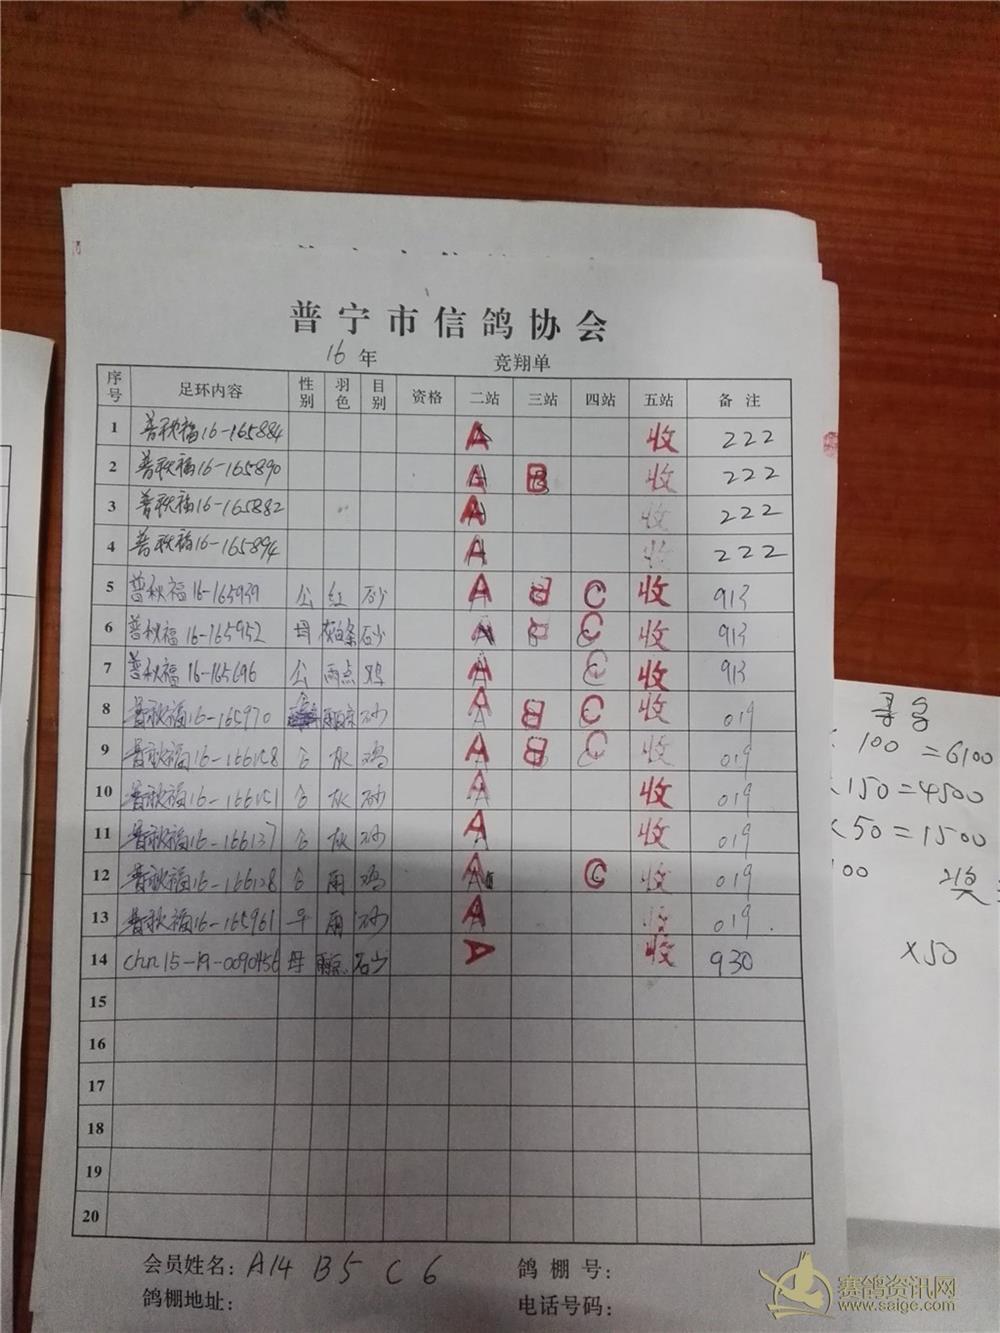 普宁市信鸽协会
16 年 竞翔单
序号 足环内容 性别 羽色 目别 资格 二站 三站 四站 五站 备注
1 普秋福16-165884 A 收 222
2 普秋福16-165890 A B 收 222
3 普秋福16-165882 A 收 222
4 普秋福16-165894 A 收 222
5 普秋福16-165939 公 红 砂 A B C 收 913
6 普秋福16-165952 母 灰白条 砂 A B C 收 913
7 普秋福16-165696 公 雨点 鸡 A C 收 913
8 普秋福16-165970 砂 A B C 收 019
9 普秋福16-166128 灰 鸡 A B C 收 019
10 普秋福16-166151 灰 砂 A 收 019
11 普秋福16-166137 灰 砂 A 收 019
12 普秋福16-166128 雨 鸡 A C 收 019
13 普秋福16-165961 雨 砂 A 收 019
14 chn15-19-0090456 母 雨点 砂 A 收 930
15
16
17
18
19
20
会员姓名: A14 B5 C6 鸽棚号:
鸽棚地址: 电话号码:
100=6100
150=4500
50=1500
100
X50
赛鸽资讯网
www.saige.com